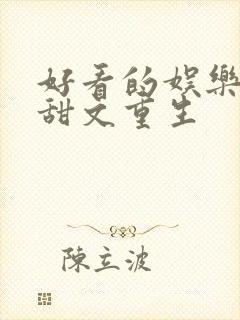 好看的娱樂
甜文重生
陳立波